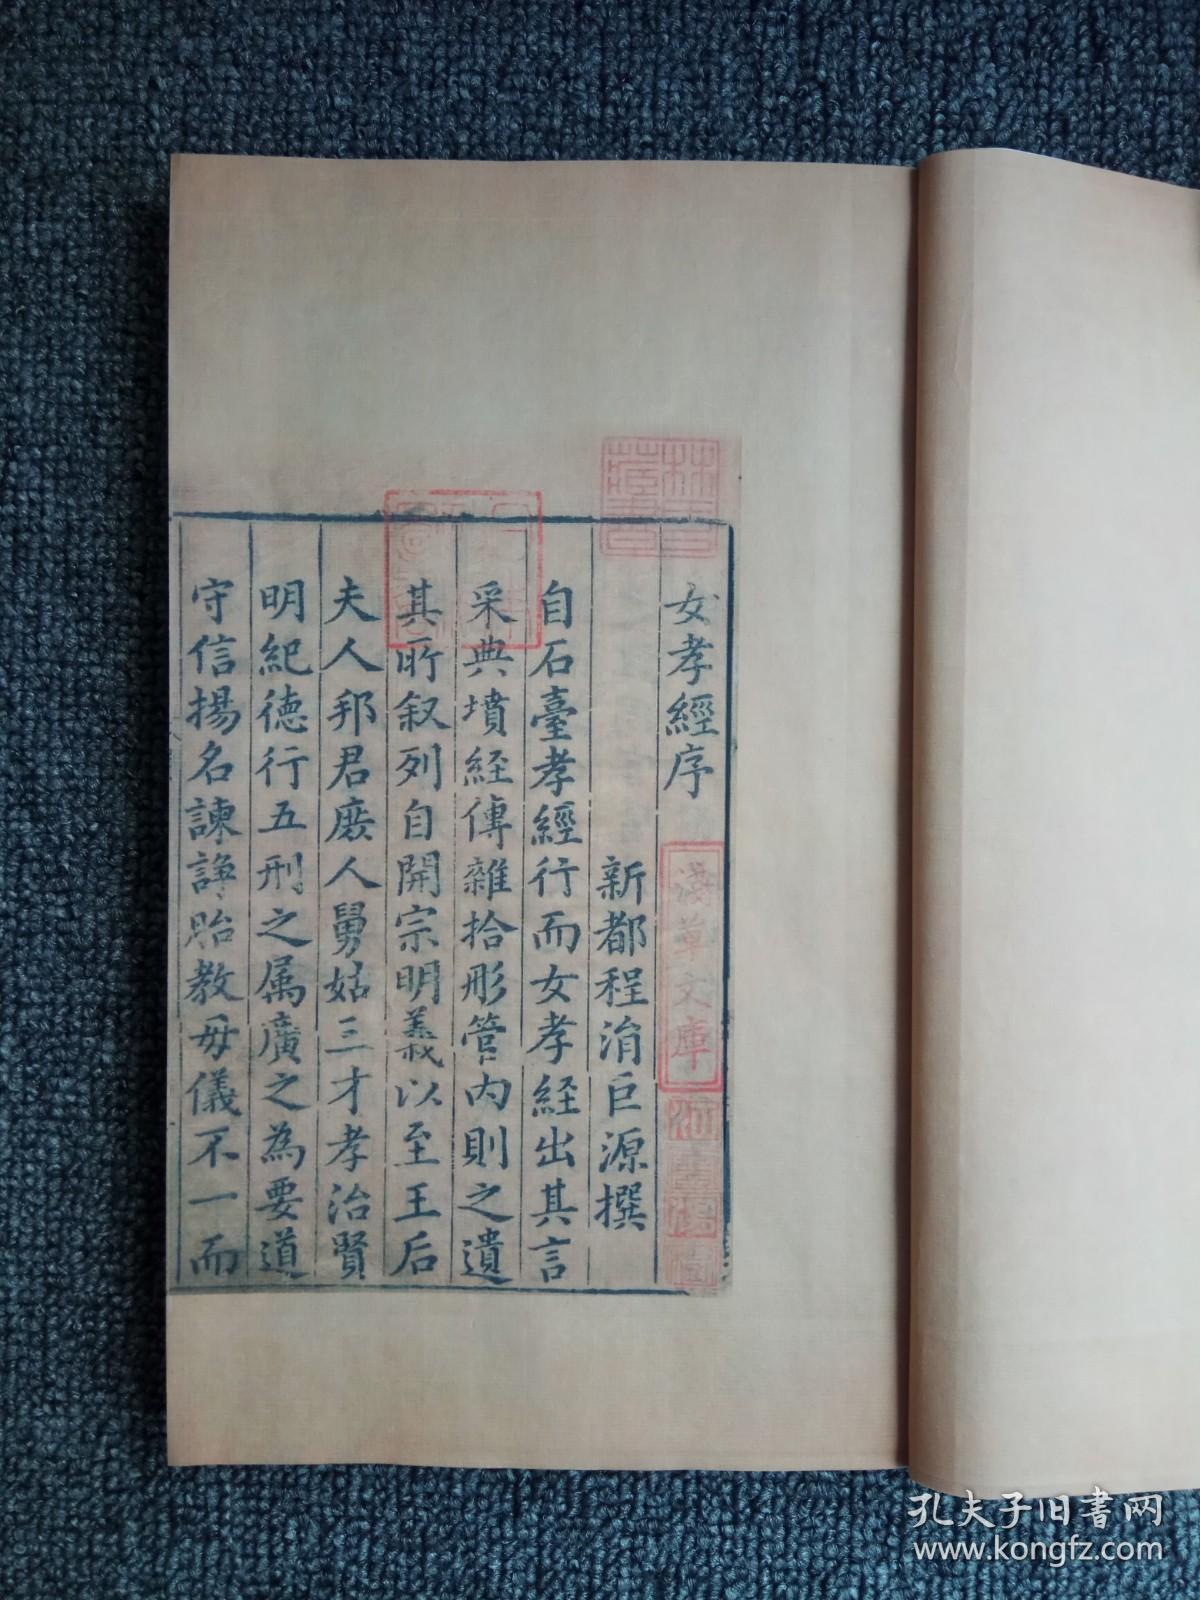 女孝經序
新都程涓巨源撰
自石臺孝經行而女孝経出其言
采典墳経傳雜拾彤管内則之遺
其所叙列自開宗明義以至王后
夫人邦君庶人舅姑三才孝治賢
明紀徳行五刑之属廣之為要道
守信揚名諫諍胎教毋儀不一而
林氏藏書
淺草文庫
孔夫子旧书网
www.kongfz.com